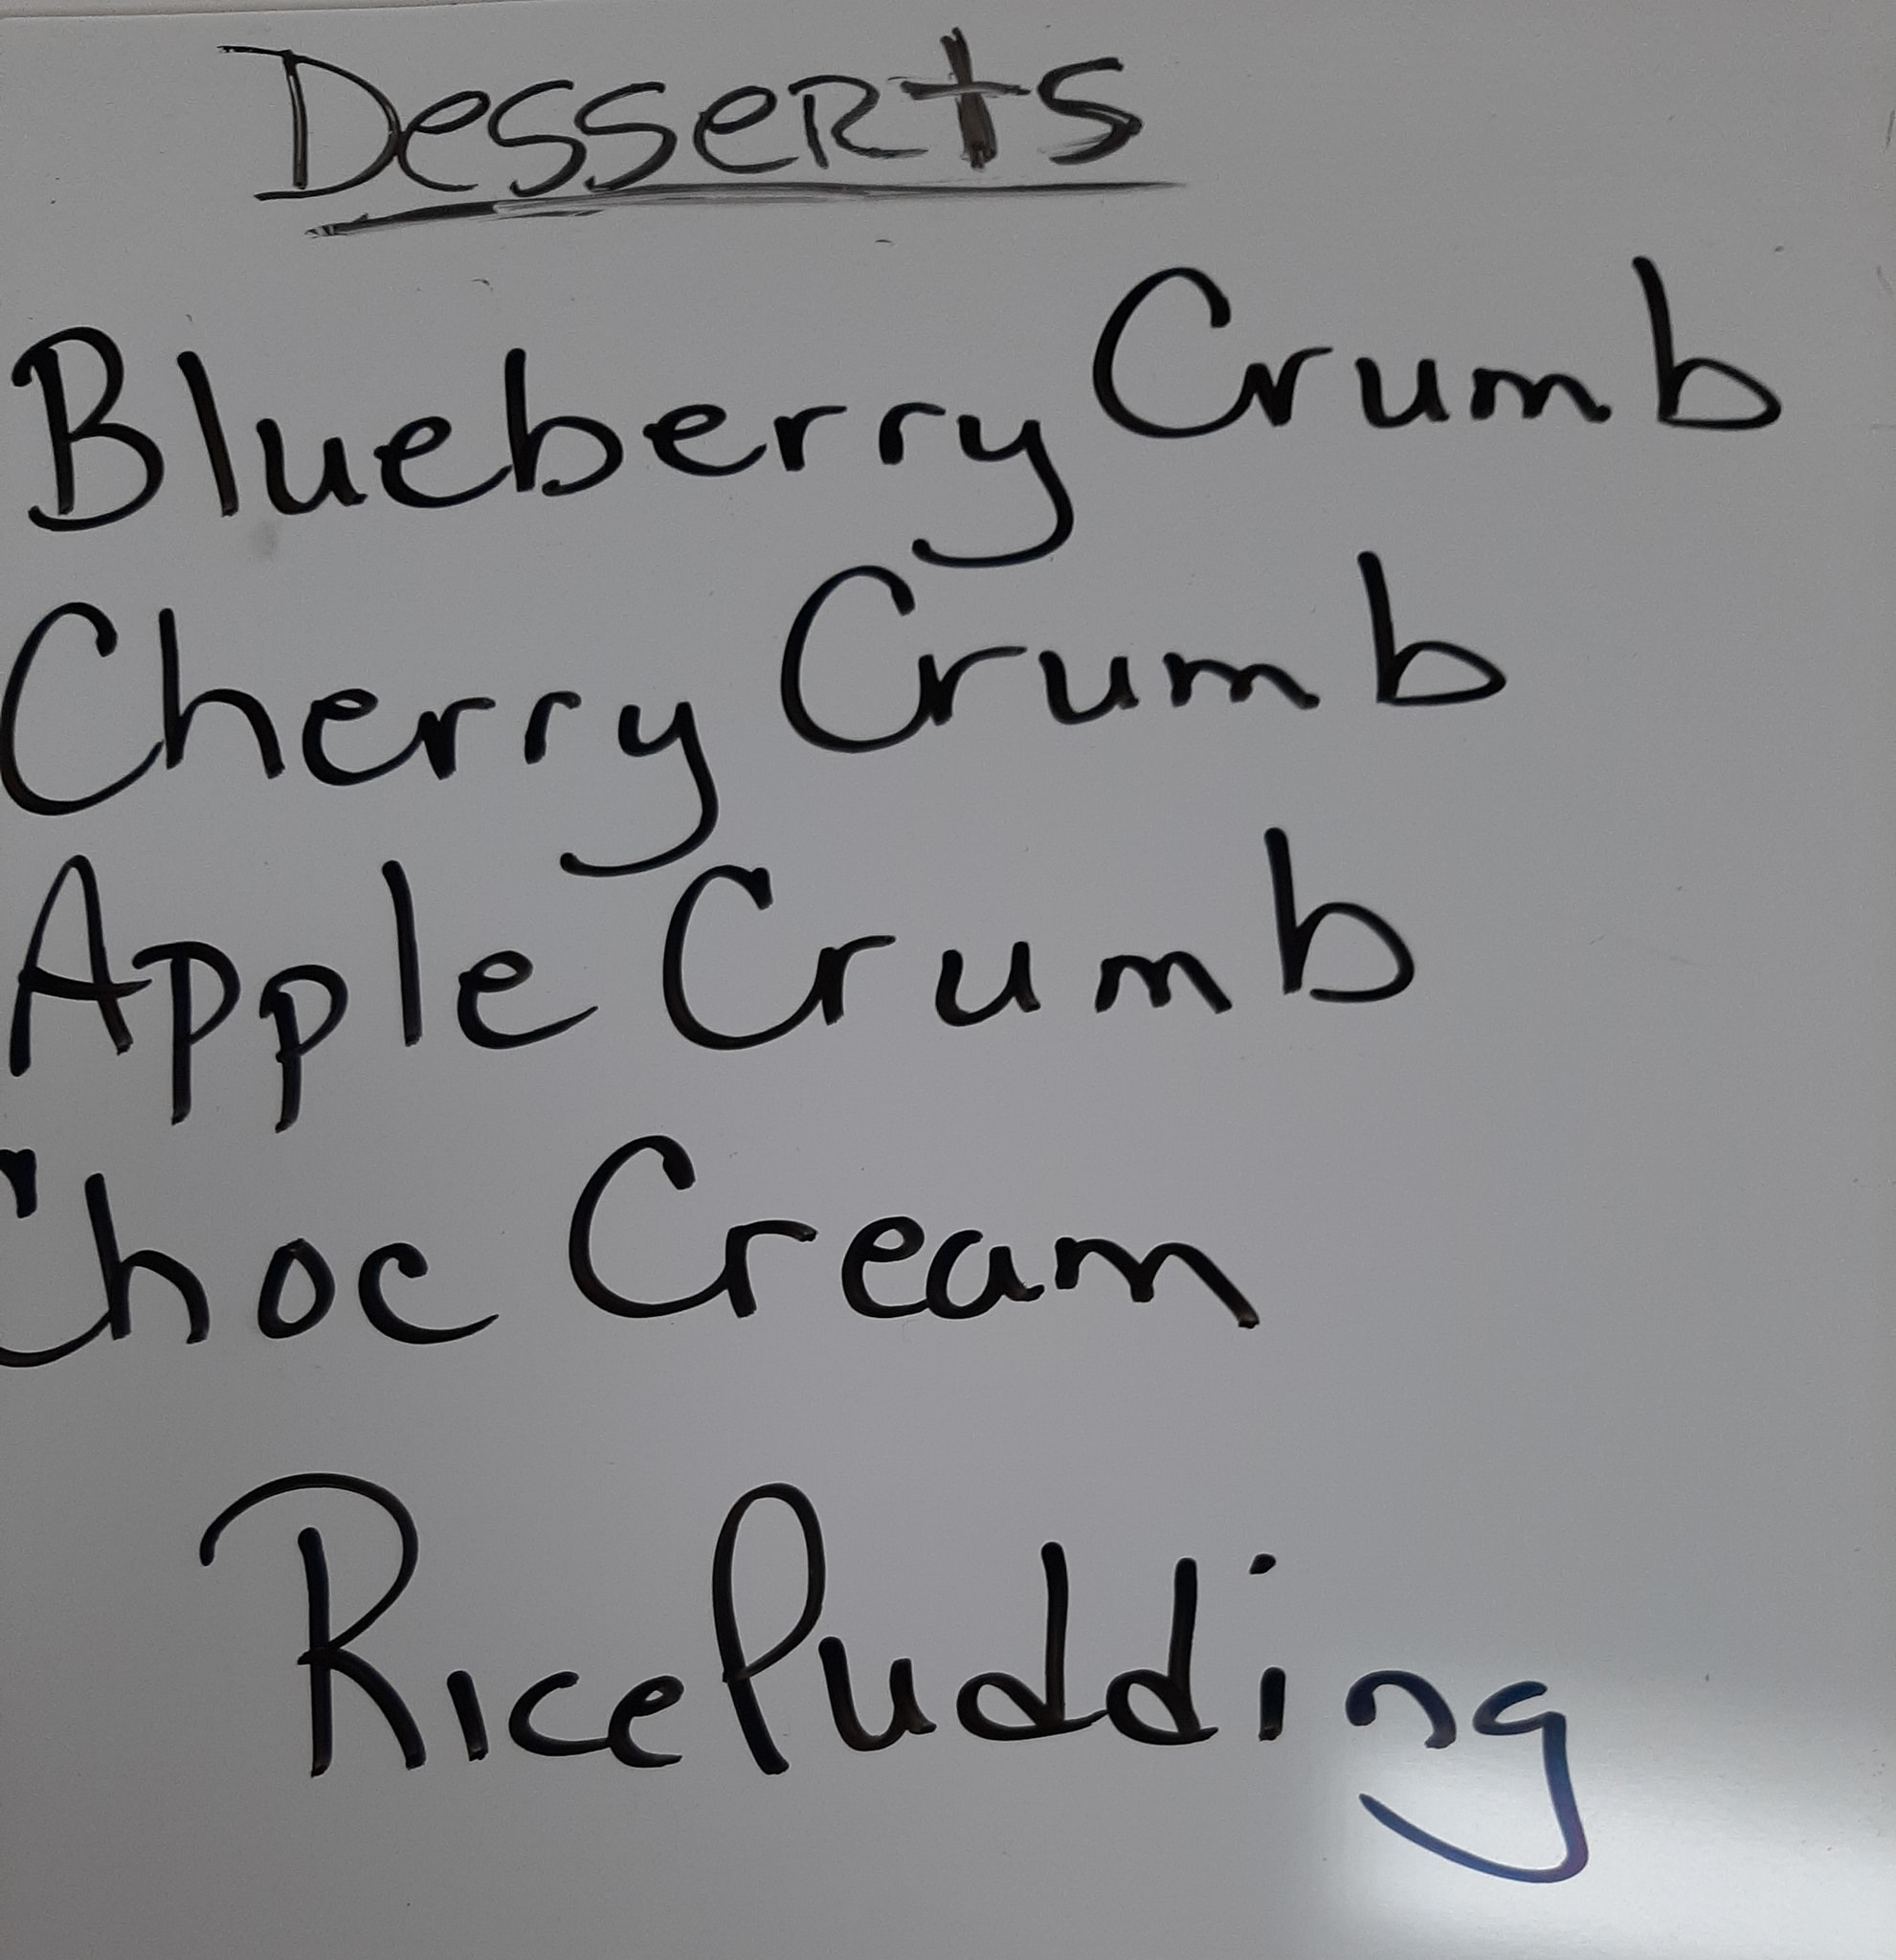 Desserts
Blueberry Crumb
Cherry Crumb
Apple Crumb
Choc Cream
Rice Pudding